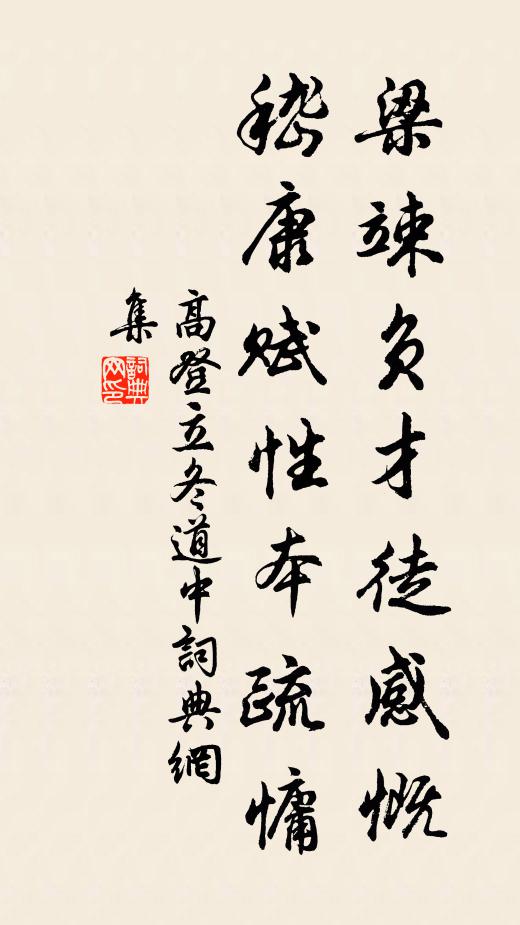 梁竦負才徒感慨
嵇康賦性本疏慵
高登立冬道中詞典網
集
詞典
网印